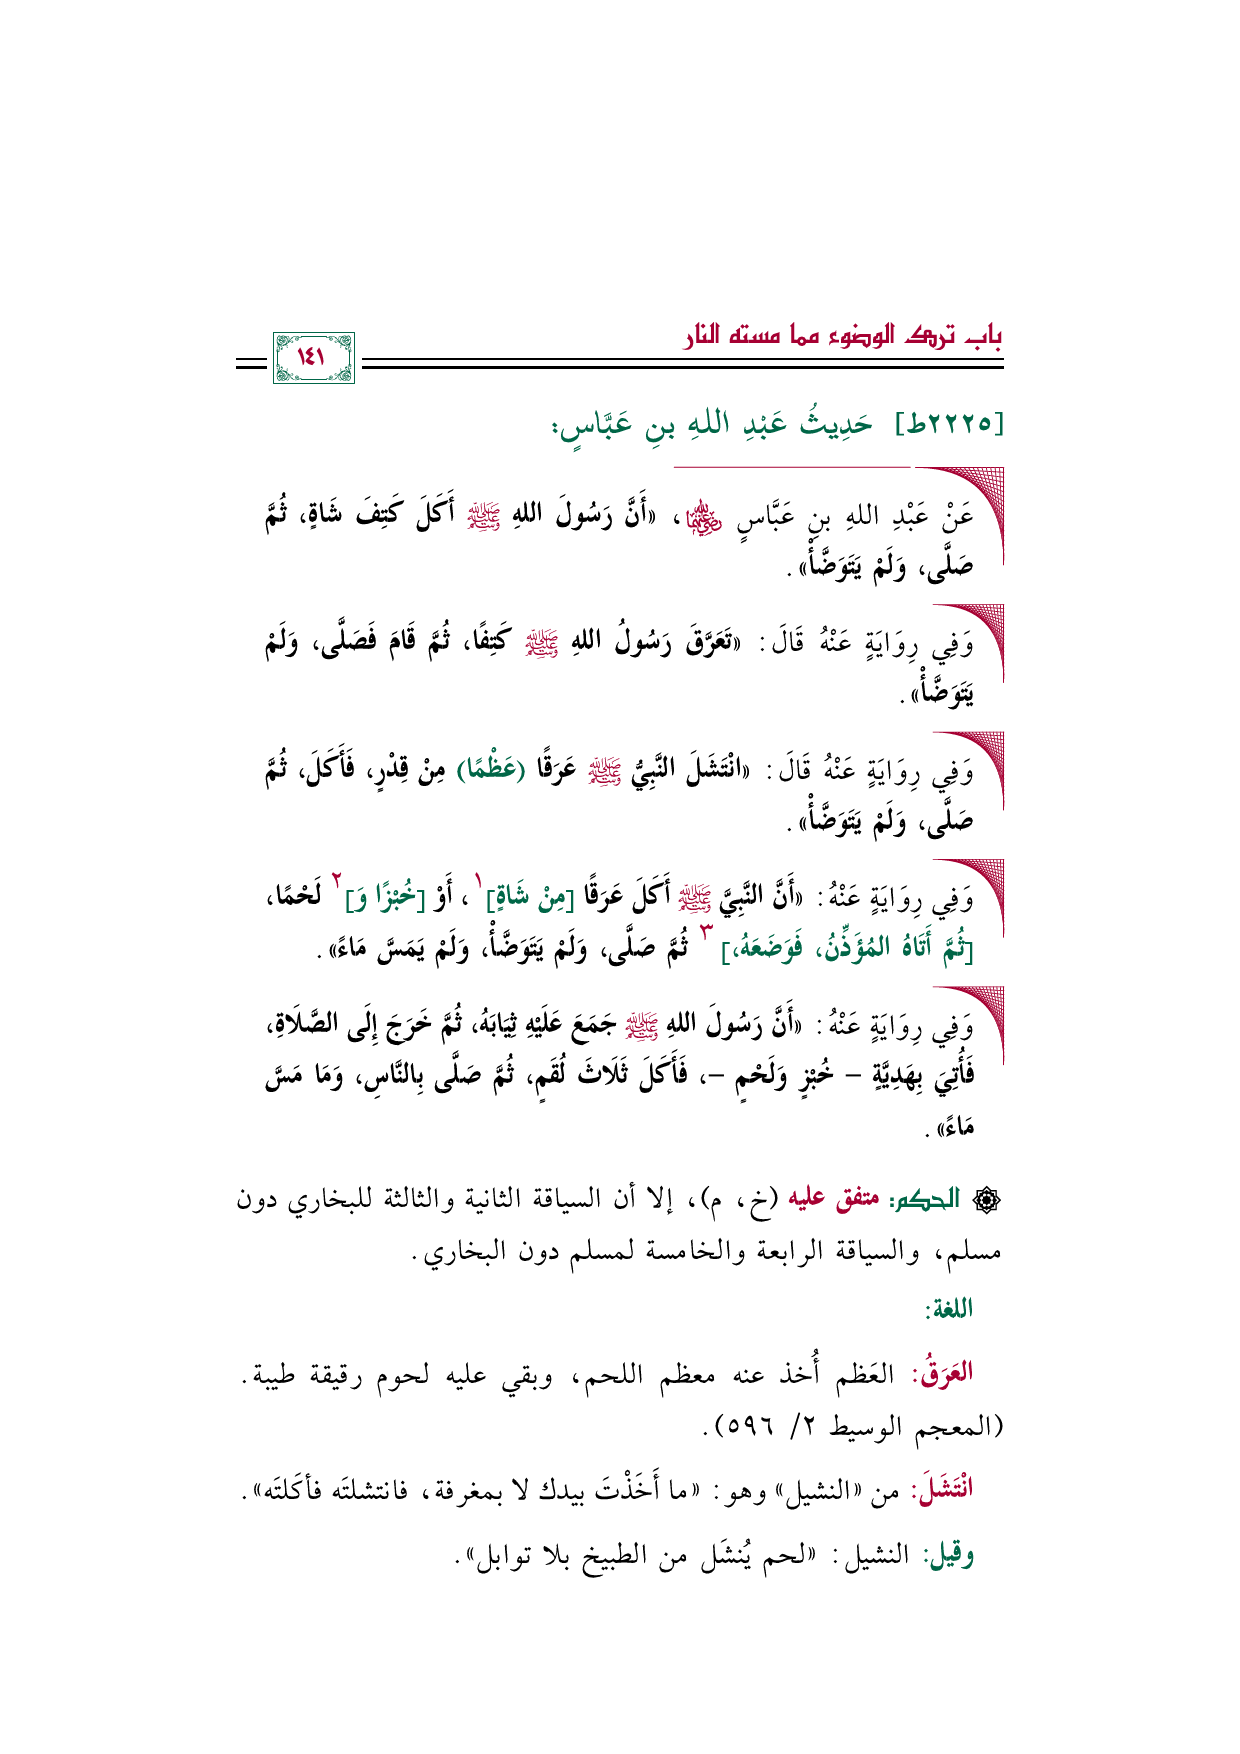 باب ترك الوضوء مما مسته النار
١٤١
[٢٢٢٥ط] حَدِيثُ عَبْدِ اللهِ بنِ عَبَّاسٍ:
عَنْ عَبْدِ اللهِ بنِ عَبَّاسٍ رضي الله عنهما، «أَنَّ رَسُولَ اللهِ ﷺ أَكَلَ كَتِفَ شَاةٍ، ثُمَّ
صَلَّى، وَلَمْ يَتَوَضَّأْ».
وَفِي رِوَايَةٍ عَنْهُ قَالَ: «تَعَرَّقَ رَسُولُ اللهِ ﷺ كَتِفًا، ثُمَّ قَامَ فَصَلَّى، وَلَمْ
يَتَوَضَّأْ».
وَفِي رِوَايَةٍ عَنْهُ قَالَ: «انْتَشَلَ النَّبِيُّ ﷺ عَرَقًا (عَظْمًا) مِنْ قِدْرٍ، فَأَكَلَ، ثُمَّ
صَلَّى، وَلَمْ يَتَوَضَّأْ».
وَفِي رِوَايَةٍ عَنْهُ: «أَنَّ النَّبِيَّ ﷺ أَكَلَ عَرَقًا [مِنْ شَاةٍ]١، أَوْ [خُبْزًا وَ]٢ لَحْمًا،
[ثُمَّ أَتَاهُ المُؤَذِّنُ، فَوَضَعَهُ،]٣ ثُمَّ صَلَّى، وَلَمْ يَتَوَضَّأْ، وَلَمْ يَمَسَّ مَاءً».
وَفِي رِوَايَةٍ عَنْهُ: «أَنَّ رَسُولَ اللهِ ﷺ جَمَعَ عَلَيْهِ ثِيَابَهُ، ثُمَّ خَرَجَ إِلَى الصَّلَاةِ،
فَأُتِيَ بِهَدِيَّةٍ – خُبْزٍ وَلَحْمٍ –، فَأَكَلَ ثَلَاثَ لُقَمٍ، ثُمَّ صَلَّى بِالنَّاسِ، وَمَا مَسَّ
مَاءً».
الحكم: متفق عليه (خ، م)، إلا أن السياقة الثانية والثالثة للبخاري دون
مسلم، والسياقة الرابعة والخامسة لمسلم دون البخاري.
اللغة:
العَرَقُ: العَظم أُخذ عنه معظم اللحم، وبقي عليه لحوم رقيقة طيبة.
(المعجم الوسيط ٢/ ٥٩٦).
انْتَشَلَ: من «النشيل» وهو: «ما أَخَذْتَ بيدك لا بمغرفة، فانتشلتَه فأكَلتَه».
وقيل: النشيل: «لحم يُنشَل من الطبيخ بلا توابل».